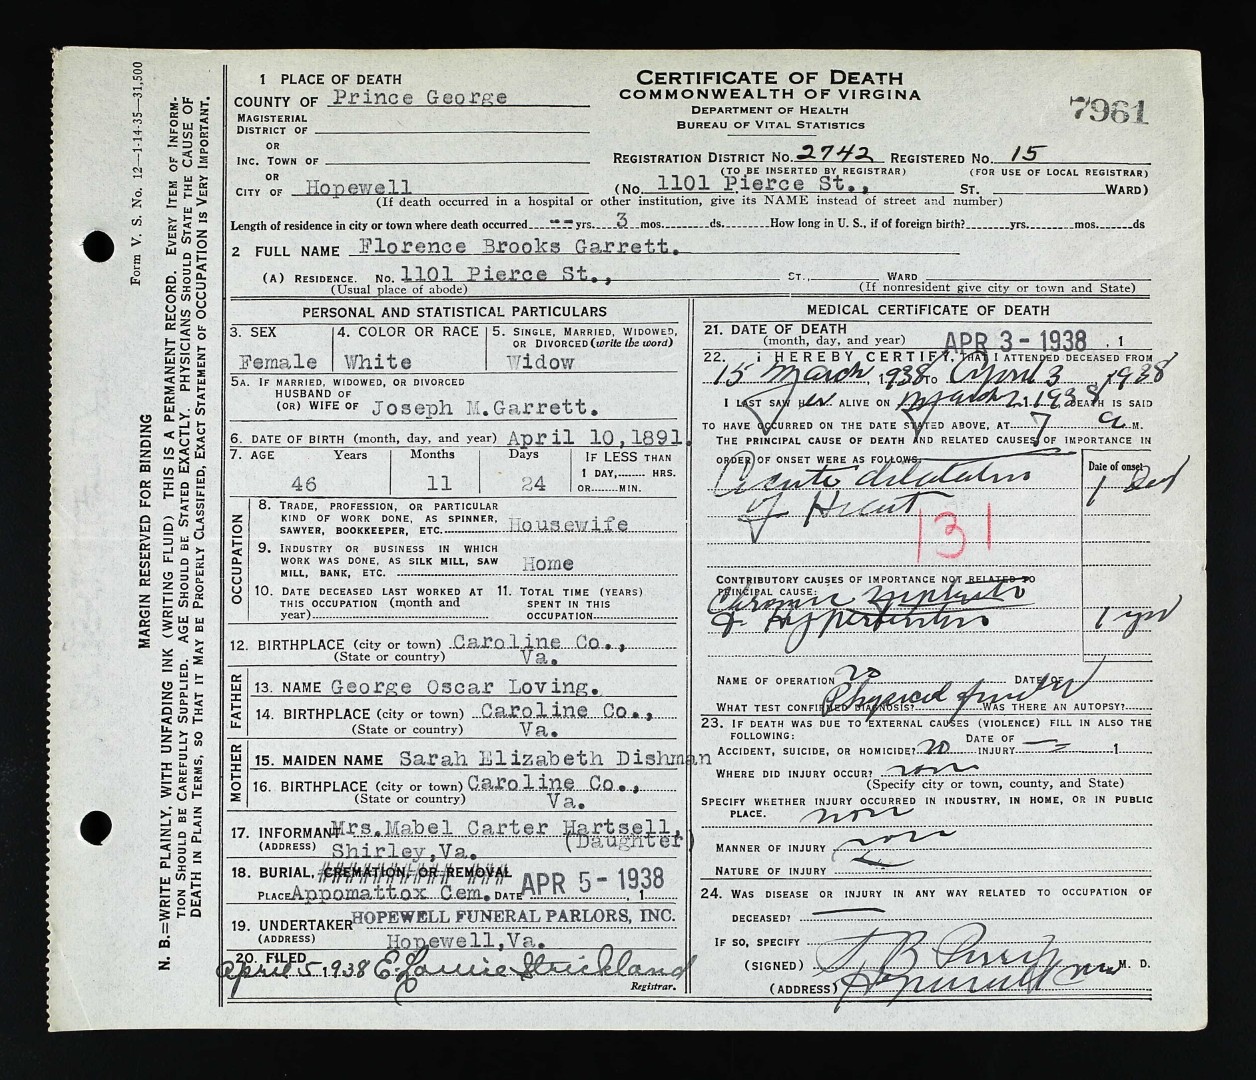 Form V. S. No. 12—1-14-35—31,500
MARGIN RESERVED FOR BINDING
N. B.=WRITE PLAINLY, WITH UNFADING INK (WRITING FLUID) THIS IS A PERMANENT RECORD. EVERY ITEM OF INFORM-
TION SHOULD BE CAREFULLY SUPPLIED. AGE SHOULD BE STATED EXACTLY. PHYSICIANS SHOULD STATE THE CAUSE OF
DEATH IN PLAIN TERMS, SO THAT IT MAY BE PROPERLY CLASSIFIED, EXACT STATEMENT OF OCCUPATION IS VERY IMPORTANT.
CERTIFICATE OF DEATH
COMMONWEALTH OF VIRGINA
DEPARTMENT OF HEALTH
BUREAU OF VITAL STATISTICS
7961
1 PLACE OF DEATH
COUNTY OF Prince George
MAGISTERIAL
DISTRICT OF
OR
INC. TOWN OF
OR
CITY OF Hopewell
REGISTRATION DISTRICT NO. 2742 REGISTERED NO. 15
(TO BE INSERTED BY REGISTRAR) (FOR USE OF LOCAL REGISTRAR)
(No. 1101 Pierce St., ST. WARD)
(If death occurred in a hospital or other institution, give its NAME instead of street and number)
Length of residence in city or town where death occurred -- yrs. 3 mos. ds. How long in U. S., if of foreign birth? yrs. mos. ds
2 FULL NAME Florence Brooks Garrett.
(A) RESIDENCE. No. 1101 Pierce St., ST., WARD
(Usual place of abode) (If nonresident give city or town and State)
PERSONAL AND STATISTICAL PARTICULARS
3. SEX 4. COLOR OR RACE 5. SINGLE, MARRIED, WIDOWED,
OR DIVORCED (write the word)
Female White Widow
5A. IF MARRIED, WIDOWED, OR DIVORCED
HUSBAND OF
(OR) WIFE OF Joseph M.Garrett.
6. DATE OF BIRTH (month, day, and year) April 10,1891.
7. AGE Years Months Days IF LESS THAN
1 DAY, HRS.
46 11 24 OR MIN.
OCCUPATION
8. TRADE, PROFESSION, OR PARTICULAR
KIND OF WORK DONE, AS SPINNER,
SAWYER, BOOKKEEPER, ETC. Housewife
9. INDUSTRY OR BUSINESS IN WHICH
WORK WAS DONE, AS SILK MILL, SAW
MILL, BANK, ETC. Home
10. DATE DECEASED LAST WORKED AT
THIS OCCUPATION (month and
year)
11. TOTAL TIME (YEARS)
SPENT IN THIS
OCCUPATION
12. BIRTHPLACE (city or town) Caroline Co.,
(State or country) Va.
FATHER
13. NAME George Oscar Loving.
14. BIRTHPLACE (city or town) Caroline Co.,
(State or country) Va.
MOTHER
15. MAIDEN NAME Sarah Elizabeth Dishman
16. BIRTHPLACE (city or town) Caroline Co.,
(State or country) Va.
17. INFORMANT Mrs.Mabel Carter Hartsell,
(ADDRESS) Shirley,Va. (Daughter)
18. BURIAL, CREMATION, OR REMOVAL
PLACE Appomattox Cem. DATE APR 5 - 1938 , 1
19. UNDERTAKER HOPEWELL FUNERAL PARLORS, INC.
(ADDRESS) Hopewell,Va.
20. FILED
April 5, 1938 E. Louise Strickland
Registrar.
MEDICAL CERTIFICATE OF DEATH
21. DATE OF DEATH
(month, day, and year) APR 3 - 1938 , 1
22. I HEREBY CERTIFY, THAT I ATTENDED DECEASED FROM
15 March, 1938 TO April 3 1938
I LAST SAW Her ALIVE ON March 21 1938 DEATH IS SAID
TO HAVE OCCURRED ON THE DATE STATED ABOVE, AT 7 a M.
THE PRINCIPAL CAUSE OF DEATH AND RELATED CAUSES OF IMPORTANCE IN
ORDER OF ONSET WERE AS FOLLOWS:
Date of onset
Acute dilatation 1 Day
of Heart
131
CONTRIBUTORY CAUSES OF IMPORTANCE NOT RELATED TO
PRINCIPAL CAUSE:
Chronic Nephritis
& Hypertension 1 yr
NAME OF OPERATION no DATE OF
WHAT TEST CONFIRMED DIAGNOSIS? Physical WAS THERE AN AUTOPSY?
23. IF DEATH WAS DUE TO EXTERNAL CAUSES (VIOLENCE) FILL IN ALSO THE
FOLLOWING:
ACCIDENT, SUICIDE, OR HOMICIDE? no DATE OF INJURY — 1
WHERE DID INJURY OCCUR? none
(Specify city or town, county, and State)
SPECIFY WHETHER INJURY OCCURRED IN INDUSTRY, IN HOME, OR IN PUBLIC
PLACE. none
MANNER OF INJURY none
NATURE OF INJURY
24. WAS DISEASE OR INJURY IN ANY WAY RELATED TO OCCUPATION OF
DECEASED? —
IF SO, SPECIFY
(SIGNED) M. D.
(ADDRESS) Hopewell